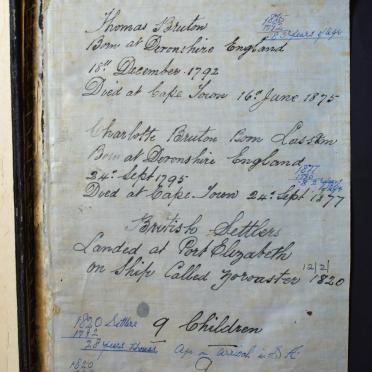 Thomas Bruton
Born at Devonshire England
18th December 1792
Died at Cape Town 16th June 1875
1875
1792
83 years of age
Charlotte Bruton Born
Born at Devonshire England
24th Sept 1795
Died at Cape Town 24th Sept 1877
1877
1795
82
British Settlers
Landed at Port Elizabeth
on Ship Called Zoroaster 12/2/1820
9 Children
1820 Settlers
1792
28 years
Age on arrival in S A
1820